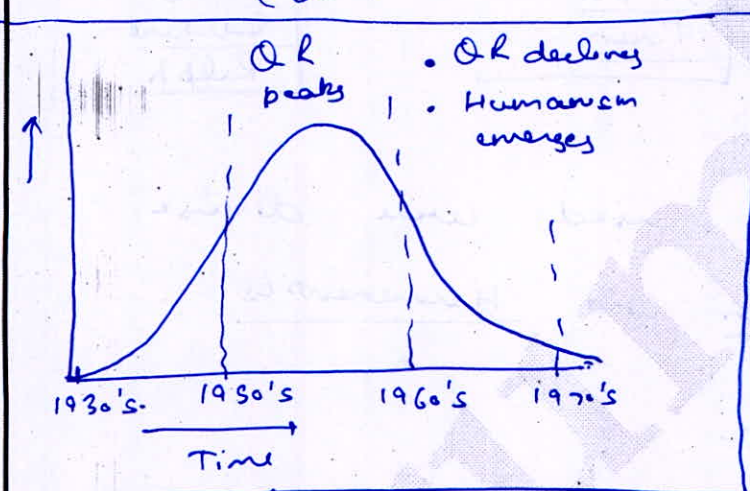 QR
peaks
• QR declines
• Humanism
emerges
1930's.
1950's
1960's
1970's
Time